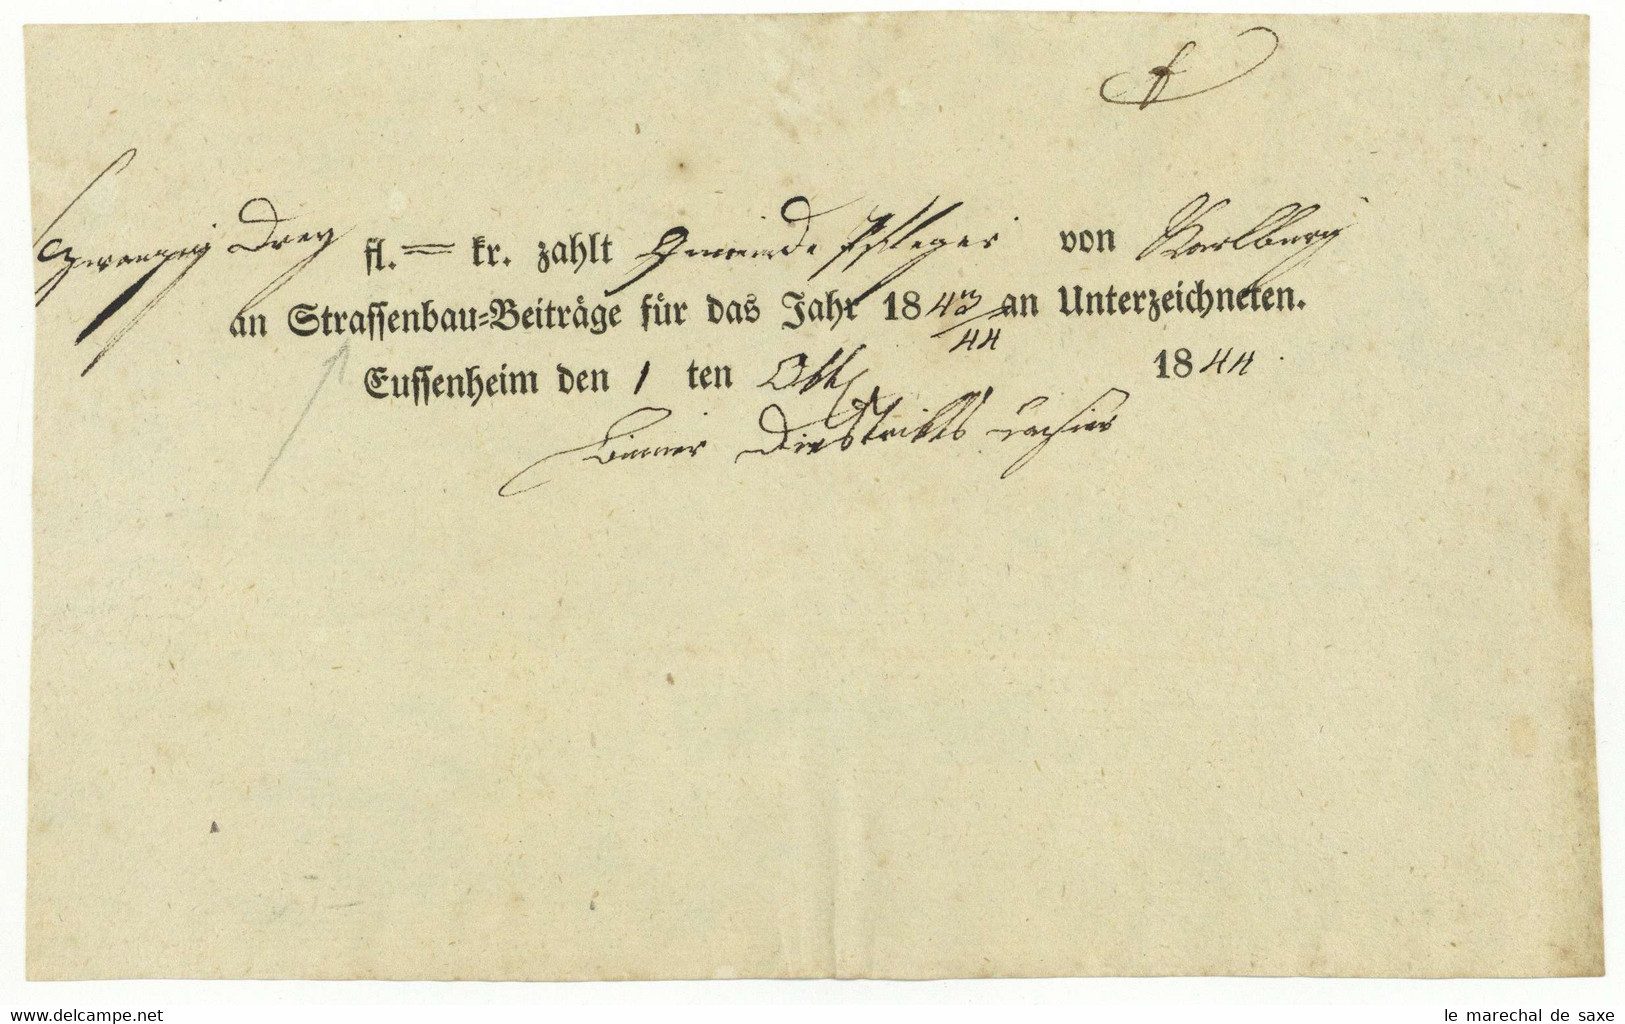 Zwanzig Drey fl. = kr. zahlt Gmeinde Pfleger von Karlburg
an Strassenbau-Beiträge für das Jahr 1843/44 an Unterzeichneten.
Eussenheim den 1 ten Okt 1844.
Distrikts Cassier
www.delcampe.net
le marechal de saxe